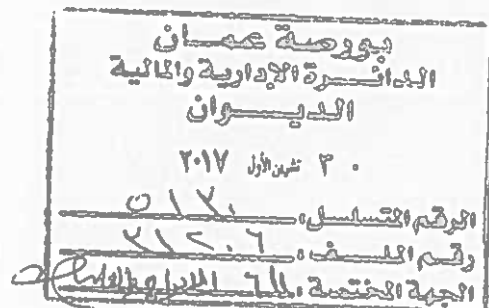 بورصة عمان
الدائرة الإدارية والمالية
الديوان
٣٠ تشرين الأول ٢٠١٧
الرقم المتسلسل: ٥١٧٠
رقم الملف: ٣١٢٠٦
الجهة المختصة: